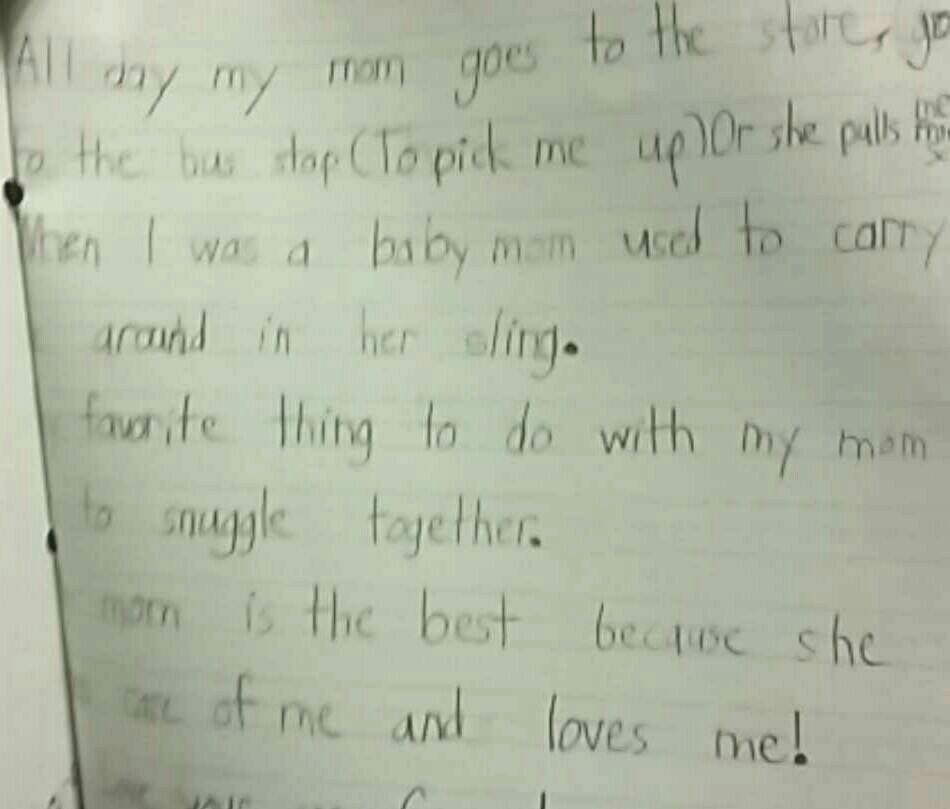 All day my mom goes to the store, go
to the bus stop (To pick me up) Or she pulls me
When I was a baby mom used to carry
around in her sling.
favorite thing to do with my mom
to snuggle together.
mom is the best because she
care of me and loves me!